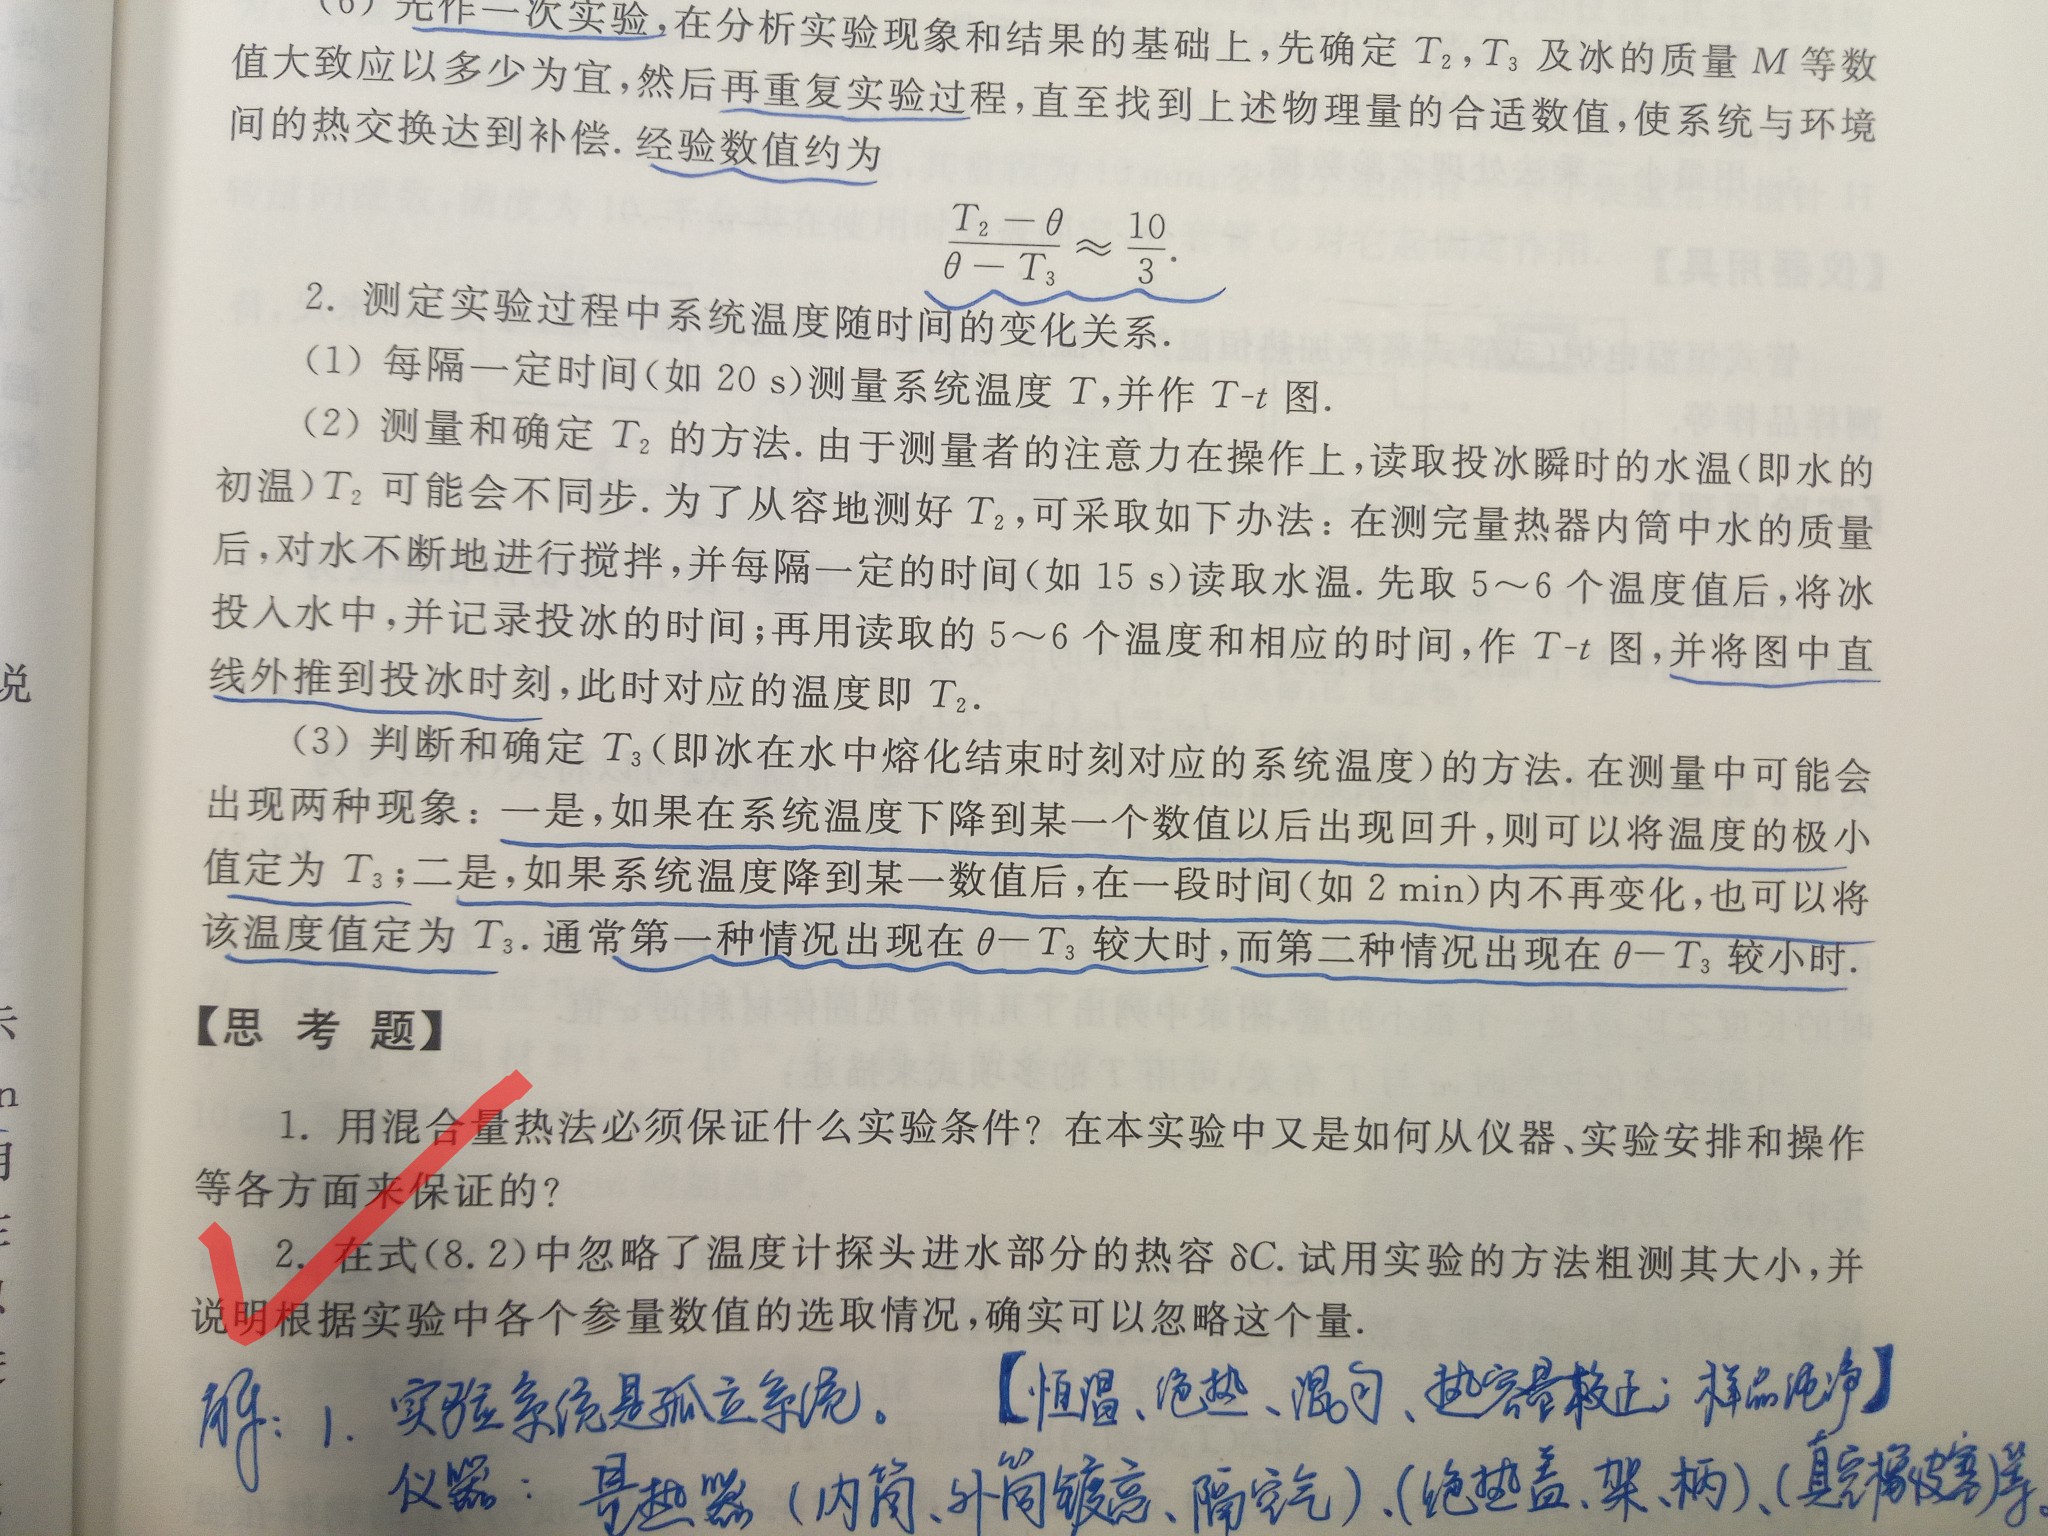 (6) 先作一次实验,在分析实验现象和结果的基础上,先确定 T₂,T₃ 及冰的质量 M 等数
值大致应以多少为宜,然后再重复实验过程,直至找到上述物理量的合适数值,使系统与环境
间的热交换达到补偿.经验数值约为
(T₂－θ)/(θ－T₃) ≈ 10/3.
2. 测定实验过程中系统温度随时间的变化关系.
(1) 每隔一定时间(如 20 s)测量系统温度 T,并作 T-t 图.
(2) 测量和确定 T₂ 的方法.由于测量者的注意力在操作上,读取投冰瞬时的水温(即水的
初温)T₂ 可能会不同步.为了从容地测好 T₂,可采取如下办法：在测完量热器内筒中水的质量
后,对水不断地进行搅拌,并每隔一定的时间(如 15 s)读取水温.先取 5～6 个温度值后,将冰
投入水中,并记录投冰的时间;再用读取的 5～6 个温度和相应的时间,作 T-t 图,并将图中直
线外推到投冰时刻,此时对应的温度即 T₂.
(3) 判断和确定 T₃(即冰在水中熔化结束时刻对应的系统温度)的方法.在测量中可能会
出现两种现象：一是,如果在系统温度下降到某一个数值以后出现回升,则可以将温度的极小
值定为 T₃;二是,如果系统温度降到某一数值后,在一段时间(如 2 min)内不再变化,也可以将
该温度值定为 T₃.通常第一种情况出现在 θ－T₃ 较大时,而第二种情况出现在 θ－T₃ 较小时.
【思 考 题】
1. 用混合量热法必须保证什么实验条件? 在本实验中又是如何从仪器、实验安排和操作
等各方面来保证的?
2. 在式(8.2)中忽略了温度计探头进水部分的热容 δC.试用实验的方法粗测其大小,并
说明根据实验中各个参量数值的选取情况,确实可以忽略这个量.
解：1. 实验系统是孤立系统。 【恒温、绝热、混匀、热容量校正；样品纯净】
仪器：量热器（内筒、外筒镀亮、隔空气）、（绝热盖、架、柄）、（真空橡皮塞）等。
说